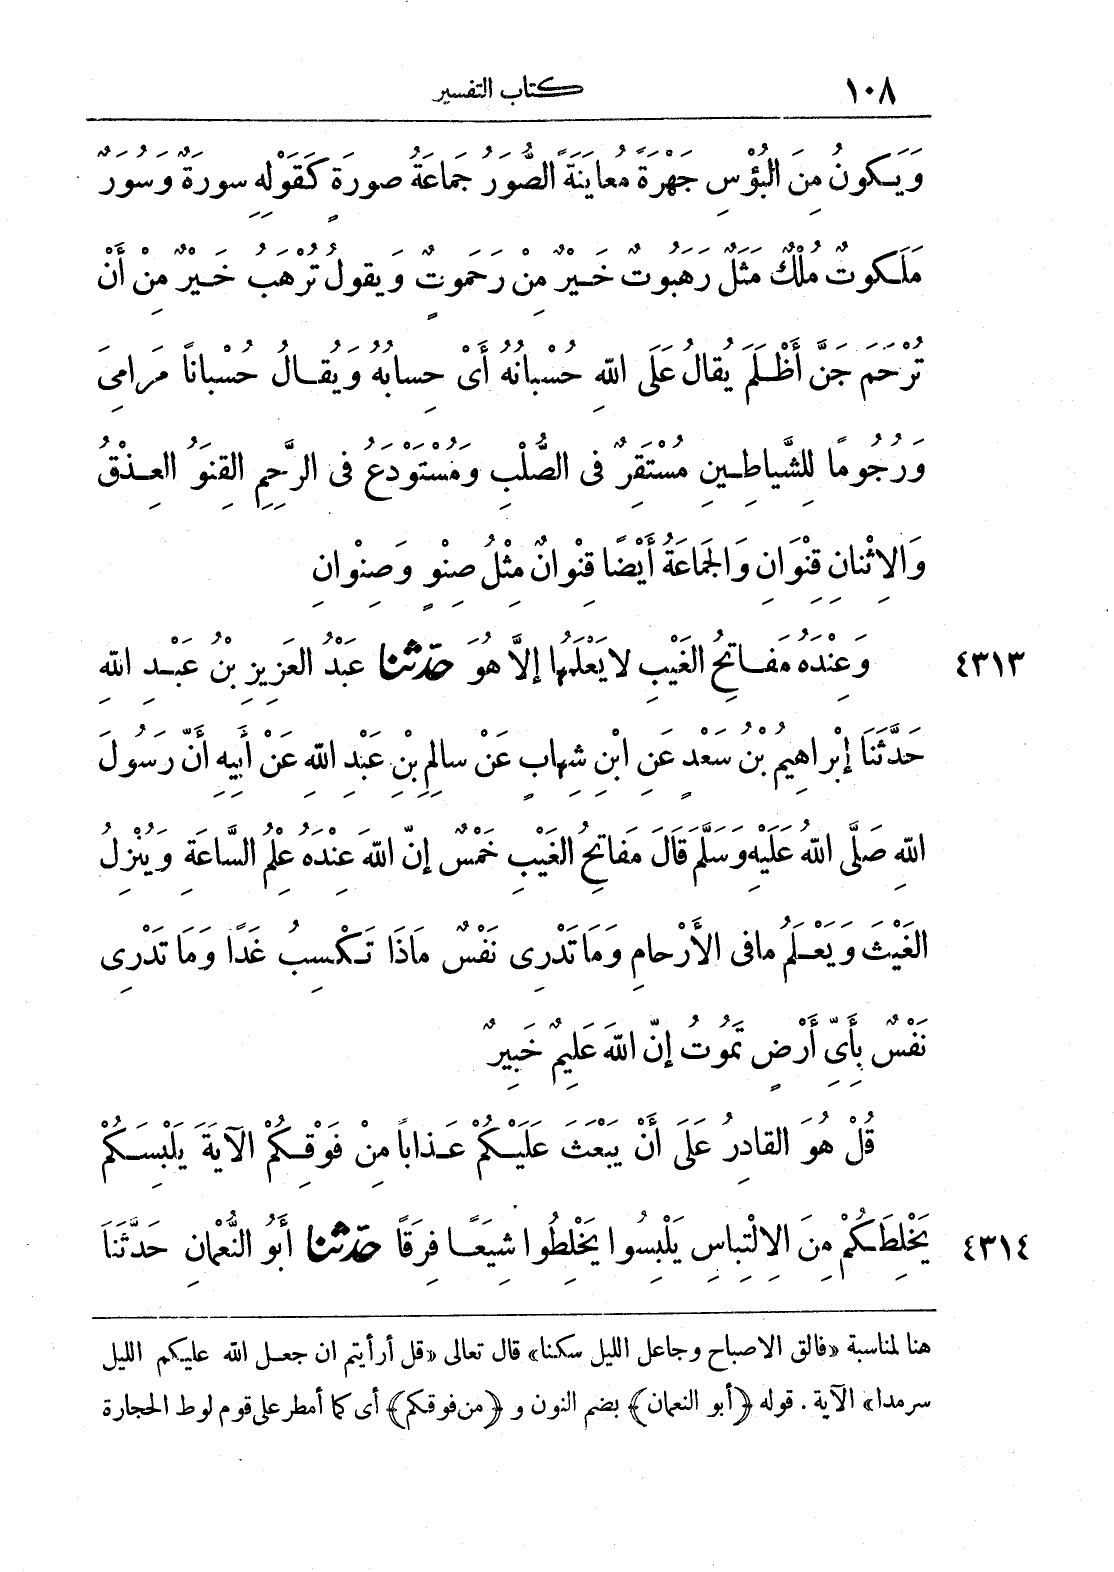 ١٠٨ كتاب التفسير
وَيَكونُ مِنَ البُؤْسِ جَهْرَةً معُايَنَةً الصُّوَرُ جَمَاعَةُ صورَةٍ كَقَوْلِهِ سورَةٌ وَسُوَرٌ
مَلَكوتٌ مُلْكٌ مَثَلٌ رَهَبُوتٌ خَيْرٌ مِنْ رَحَمَوتٍ وَيقولُ تُرْهَبُ خَيْرٌ مِنْ أَنْ
تُرْحَمَ جَنَّ أَظْلَمَ يُقالُ عَلَى اللهِ حُسْبانُهُ أَىْ حِسابُهُ وَيُقالُ حُسْباناً مَرامِىَ
وَرُجُومًا لِلشَّياطِينِ مُسْتَقِرٌّ فى الصُّلْبِ وَمُسْتَوْدَعٌ فى الرَّحِمِ القِنَوُ العِذْقُ
وَالِاثْنانِ قِنْوَانِ وَالجَمَاعَةُ أَيْضًا قِنْوانٌ مِثْلُ صِنْوٍ وَصِنْوانِ
٤٣١٣ وَعِنْدَهُ مَفَاتِحُ الغَيْبِ لا يَعْلَمُها إلَّا هُوَ حَدّثنا عَبدُ العَزِيزِ بنُ عَبْدِ اللهِ
حَدَّثَنَا إبْراهِيمُ بْنُ سَعْدٍ عَنِ ابْنِ شِهابٍ عَنْ سالِمِ بْنِ عَبْدِ اللهِ عَنْ أَبِيهِ أَنّ رَسُولَ
اللهِ صَلَّى اللهُ عَلَيْهِ وَسَلَّمَ قَالَ مَفَاتِحُ الغَيْبِ خَمْسٌ إنّ اللهَ عِنْدَهُ عِلْمُ السَّاعَةِ وَيُنْزِلُ
الغَيْثَ وَيَعْلَمُ مافى الأَرْحامِ وَمَا تَدْرِى نَفْسٌ مَاذَا تَكْسِبُ غَدًا وَمَا تَدْرِى
نَفْسٌ بِأَىِّ أَرْضٍ تَمُوتُ إنّ اللهَ عَلِيمٌ خَبِيرٌ
قُلْ هُوَ القادِرُ عَلَى أَنْ يَبْعَثَ عَلَيْكُمْ عَذاباً مِنْ فَوْقِكُمْ الآيَةَ يَلْبِسَكُمْ
٤٣١٤ يَخْلِطَكُمْ مِنَ الِالْتِباسِ يَلْبِسُوا يَخْلِطُوا شِيَعًا فِرَقًا حَدّثنا أَبُو النُّعْمانِ حَدَّثَنَا
هنا لمناسبة «فالق الاصباح وجاعل الليل سكنا» قال تعالى «قل أرأيتم ان جعل الله عليكم الليل
سرمدا» الآية . قوله ﴿أبو النعمان﴾ بضم النون و ﴿من فوقكم﴾ أى كما أمطر على قوم لوط الحجارة